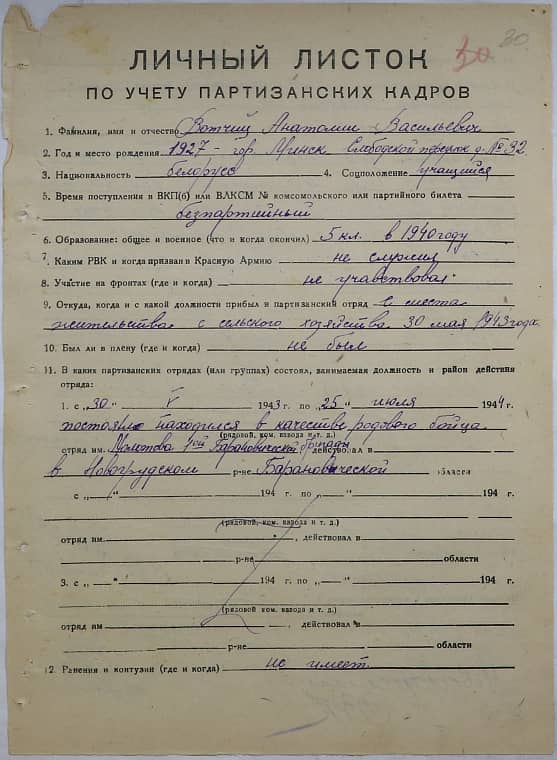 30 30
ЛИЧНЫЙ ЛИСТОК
ПО УЧЕТУ ПАРТИЗАНСКИХ КАДРОВ
1. Фамилия, имя и отчество Вотчиц Анатолий Васильевич
2. Год и место рождения 1927 - гор. Минск Слободской переулок д. № 32
3. Национальность белорус 4. Соцположение учащийся
5. Время поступления в ВКП(б) или ВЛКСМ № комсомольского или партийного билета
безпартийный
6. Образование: общее и военное (что и когда окончил) 5 кл. в 1940 году
7. Каким РВК и когда призван в Красную Армию не служил
8. Участие на фронтах (где и когда) не участвовал
9. Откуда, когда и с какой должности прибыл в партизанский отряд с места
жительства с сельского хозяйства 30 мая 1943 года
10. Был ли в плену (где и когда) не был
11. В каких партизанских отрядах (или группах) состоял, занимаемая должность и район действия
отряда:
1. с „30" V 1943 г. по „25" июля 1944 г.
постоянно находился в качестве рядового бойца
(рядовой, ком. взвода и т. д.)
отряд им. Молотова 1ой Барановической бригады действовал в
в Новогрудском р-не Барановической области
с „ " 194 г. по „ " 194 г.
(рядовой, ком. взвода и т. д.)
отряд им , действовал в
р-не области
3. с „ " 194 г. по „ " 194 г.
(рядовой ком. взвода и т. д.)
отряд им , действовал в
р-не области
12. Ранения и контузии (где и когда) не имеет